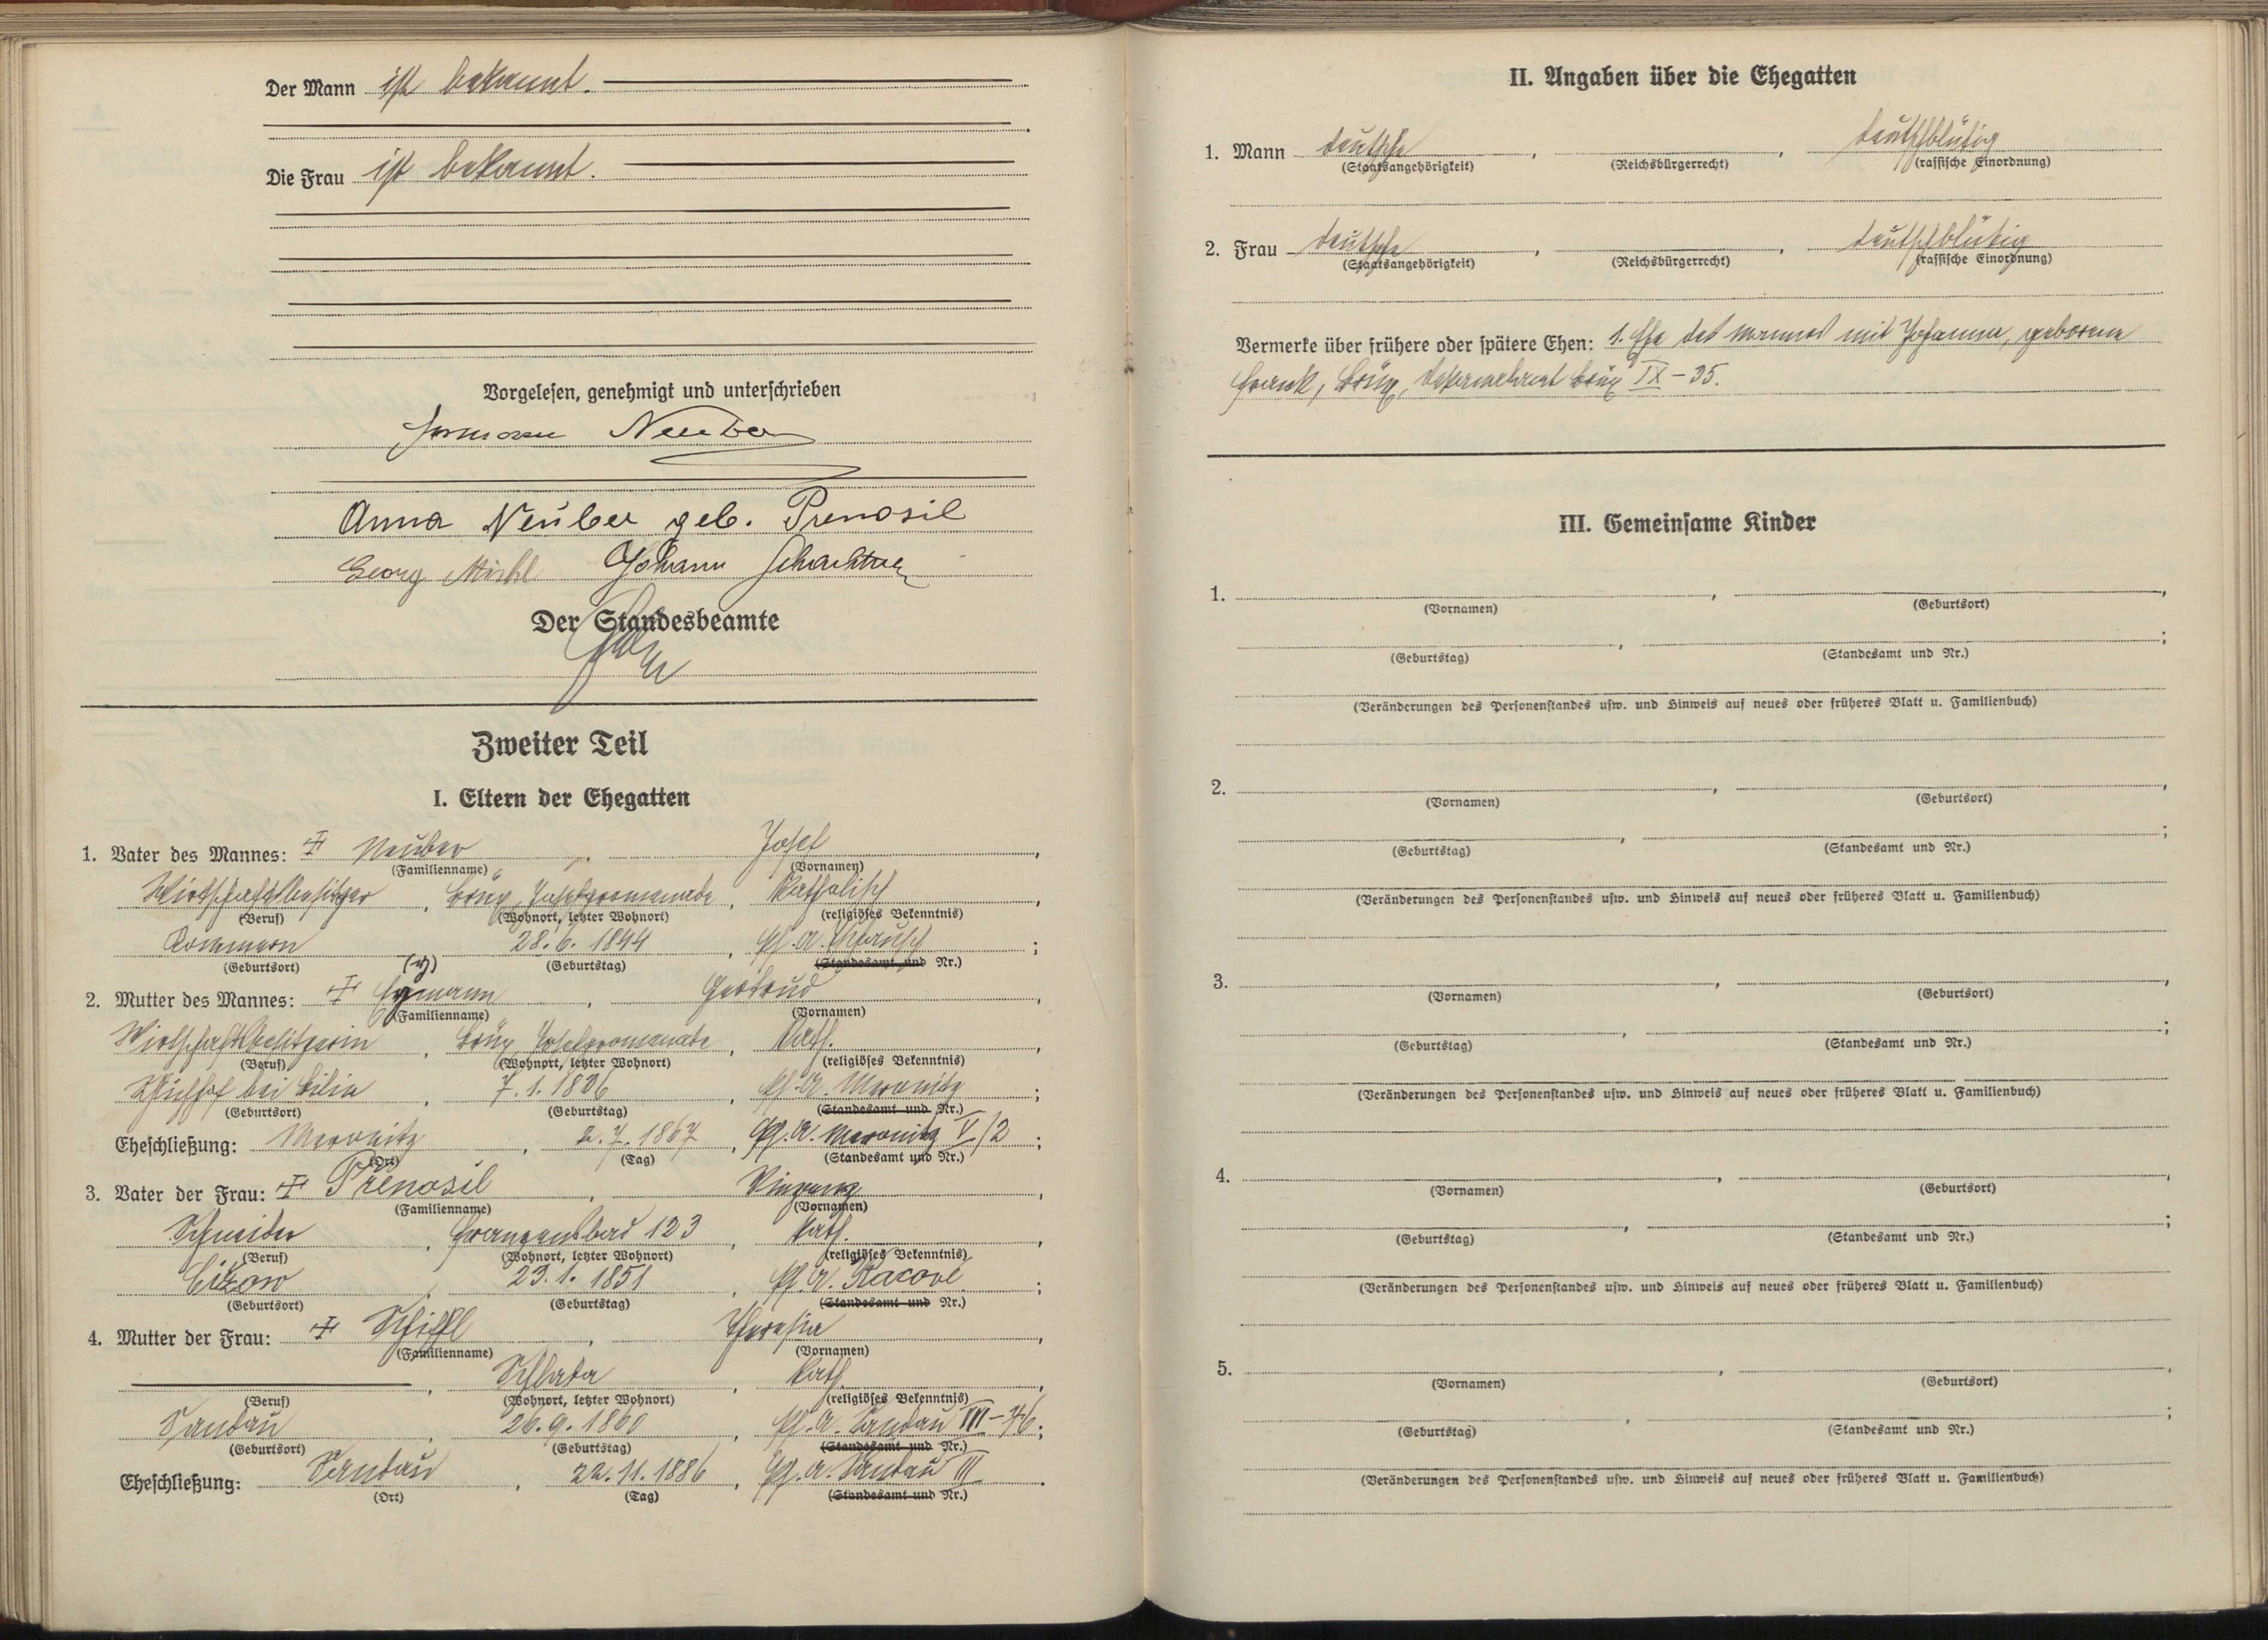 Der Mann ist bekannt.
Die Frau ist bekannt.
Vorgelesen, genehmigt und unterschrieben
Hermann Neuber
Anna Neuber geb. Prenosil
Georg Johann Schachtner
Der Standesbeamte
Zweiter Teil
I. Eltern der Ehegatten
1. Vater des Mannes: Neuber, Josef,
(Familienname) (Vornamen)
Wirtschaftsbesitzer, Brüx, Josefspromenade, katholisch,
(Beruf) (Wohnort, letzter Wohnort) (religiöses Bekenntnis)
Kommern 28.6.1844, Pf. A.
(Geburtsort) (Geburtstag) (Standesamt und Nr.)
(y)
2. Mutter des Mannes: Gertrud,
(Familienname) (Vornamen)
Wirtschaftsbesitzerin, Brüx, Josefspromenade, kath.,
(Beruf) (Wohnort, letzter Wohnort) (religiöses Bekenntnis)
bei Bilin, 7.1.1836, Pf. A. Meronitz;
(Geburtsort) (Geburtstag) (Standesamt und Nr.)
Eheschließung: Meronitz, 2.7.1867, Pf. A. Meronitz V/2;
(Ort) (Tag) (Standesamt und Nr.)
3. Vater der Frau: Přenosil, Vinzenz
(Familienname) (Vornamen)
Schneider, Franzensbad 123, kath.,
(Beruf) (Wohnort, letzter Wohnort) (religiöses Bekenntnis)
Čižow, 23.1.1851, Pf. A. Racové;
(Geburtsort) (Geburtstag) (Standesamt und Nr.)
4. Mutter der Frau: Schiffl, Theresia,
(Familienname) (Vornamen)
Schlada, kath.,
(Beruf) (Wohnort, letzter Wohnort) (religiöses Bekenntnis)
Sandau, 26.9.1860, Pf. A. Sandau III-76;
(Geburtsort) (Geburtstag) (Standesamt und Nr.)
Eheschließung: Sandau, 22.11.1886, Pf. A. Sandau III.
(Ort) (Tag) (Standesamt und Nr.)
II. Angaben über die Ehegatten
1. Mann deutsche, , deutschblütig
(Staatsangehörigkeit) (Reichsbürgerrecht) (rassische Einordnung)
2. Frau deutsche, , deutschblütig
(Staatsangehörigkeit) (Reichsbürgerrecht) (rassische Einordnung)
Vermerke über frühere oder spätere Ehen: 1. Ehe des Mannes mit Johanna, geborene
Frank, Brüx, Dekanalamt Brüx IX-35.
III. Gemeinsame Kinder
1. , ,
(Vornamen) (Geburtsort)
, ;
(Geburtstag) (Standesamt und Nr.)
(Veränderungen des Personenstandes usw. und Hinweis auf neues oder früheres Blatt u. Familienbuch)
2. , ,
(Vornamen) (Geburtsort)
, ;
(Geburtstag) (Standesamt und Nr.)
(Veränderungen des Personenstandes usw. und Hinweis auf neues oder früheres Blatt u. Familienbuch)
3. , ,
(Vornamen) (Geburtsort)
, ;
(Geburtstag) (Standesamt und Nr.)
(Veränderungen des Personenstandes usw. und Hinweis auf neues oder früheres Blatt u. Familienbuch)
4. , ,
(Vornamen) (Geburtsort)
, ;
(Geburtstag) (Standesamt und Nr.)
(Veränderungen des Personenstandes usw. und Hinweis auf neues oder früheres Blatt u. Familienbuch)
5. , ,
(Vornamen) (Geburtsort)
, ;
(Geburtstag) (Standesamt und Nr.)
(Veränderungen des Personenstandes usw. und Hinweis auf neues oder früheres Blatt u. Familienbuch)